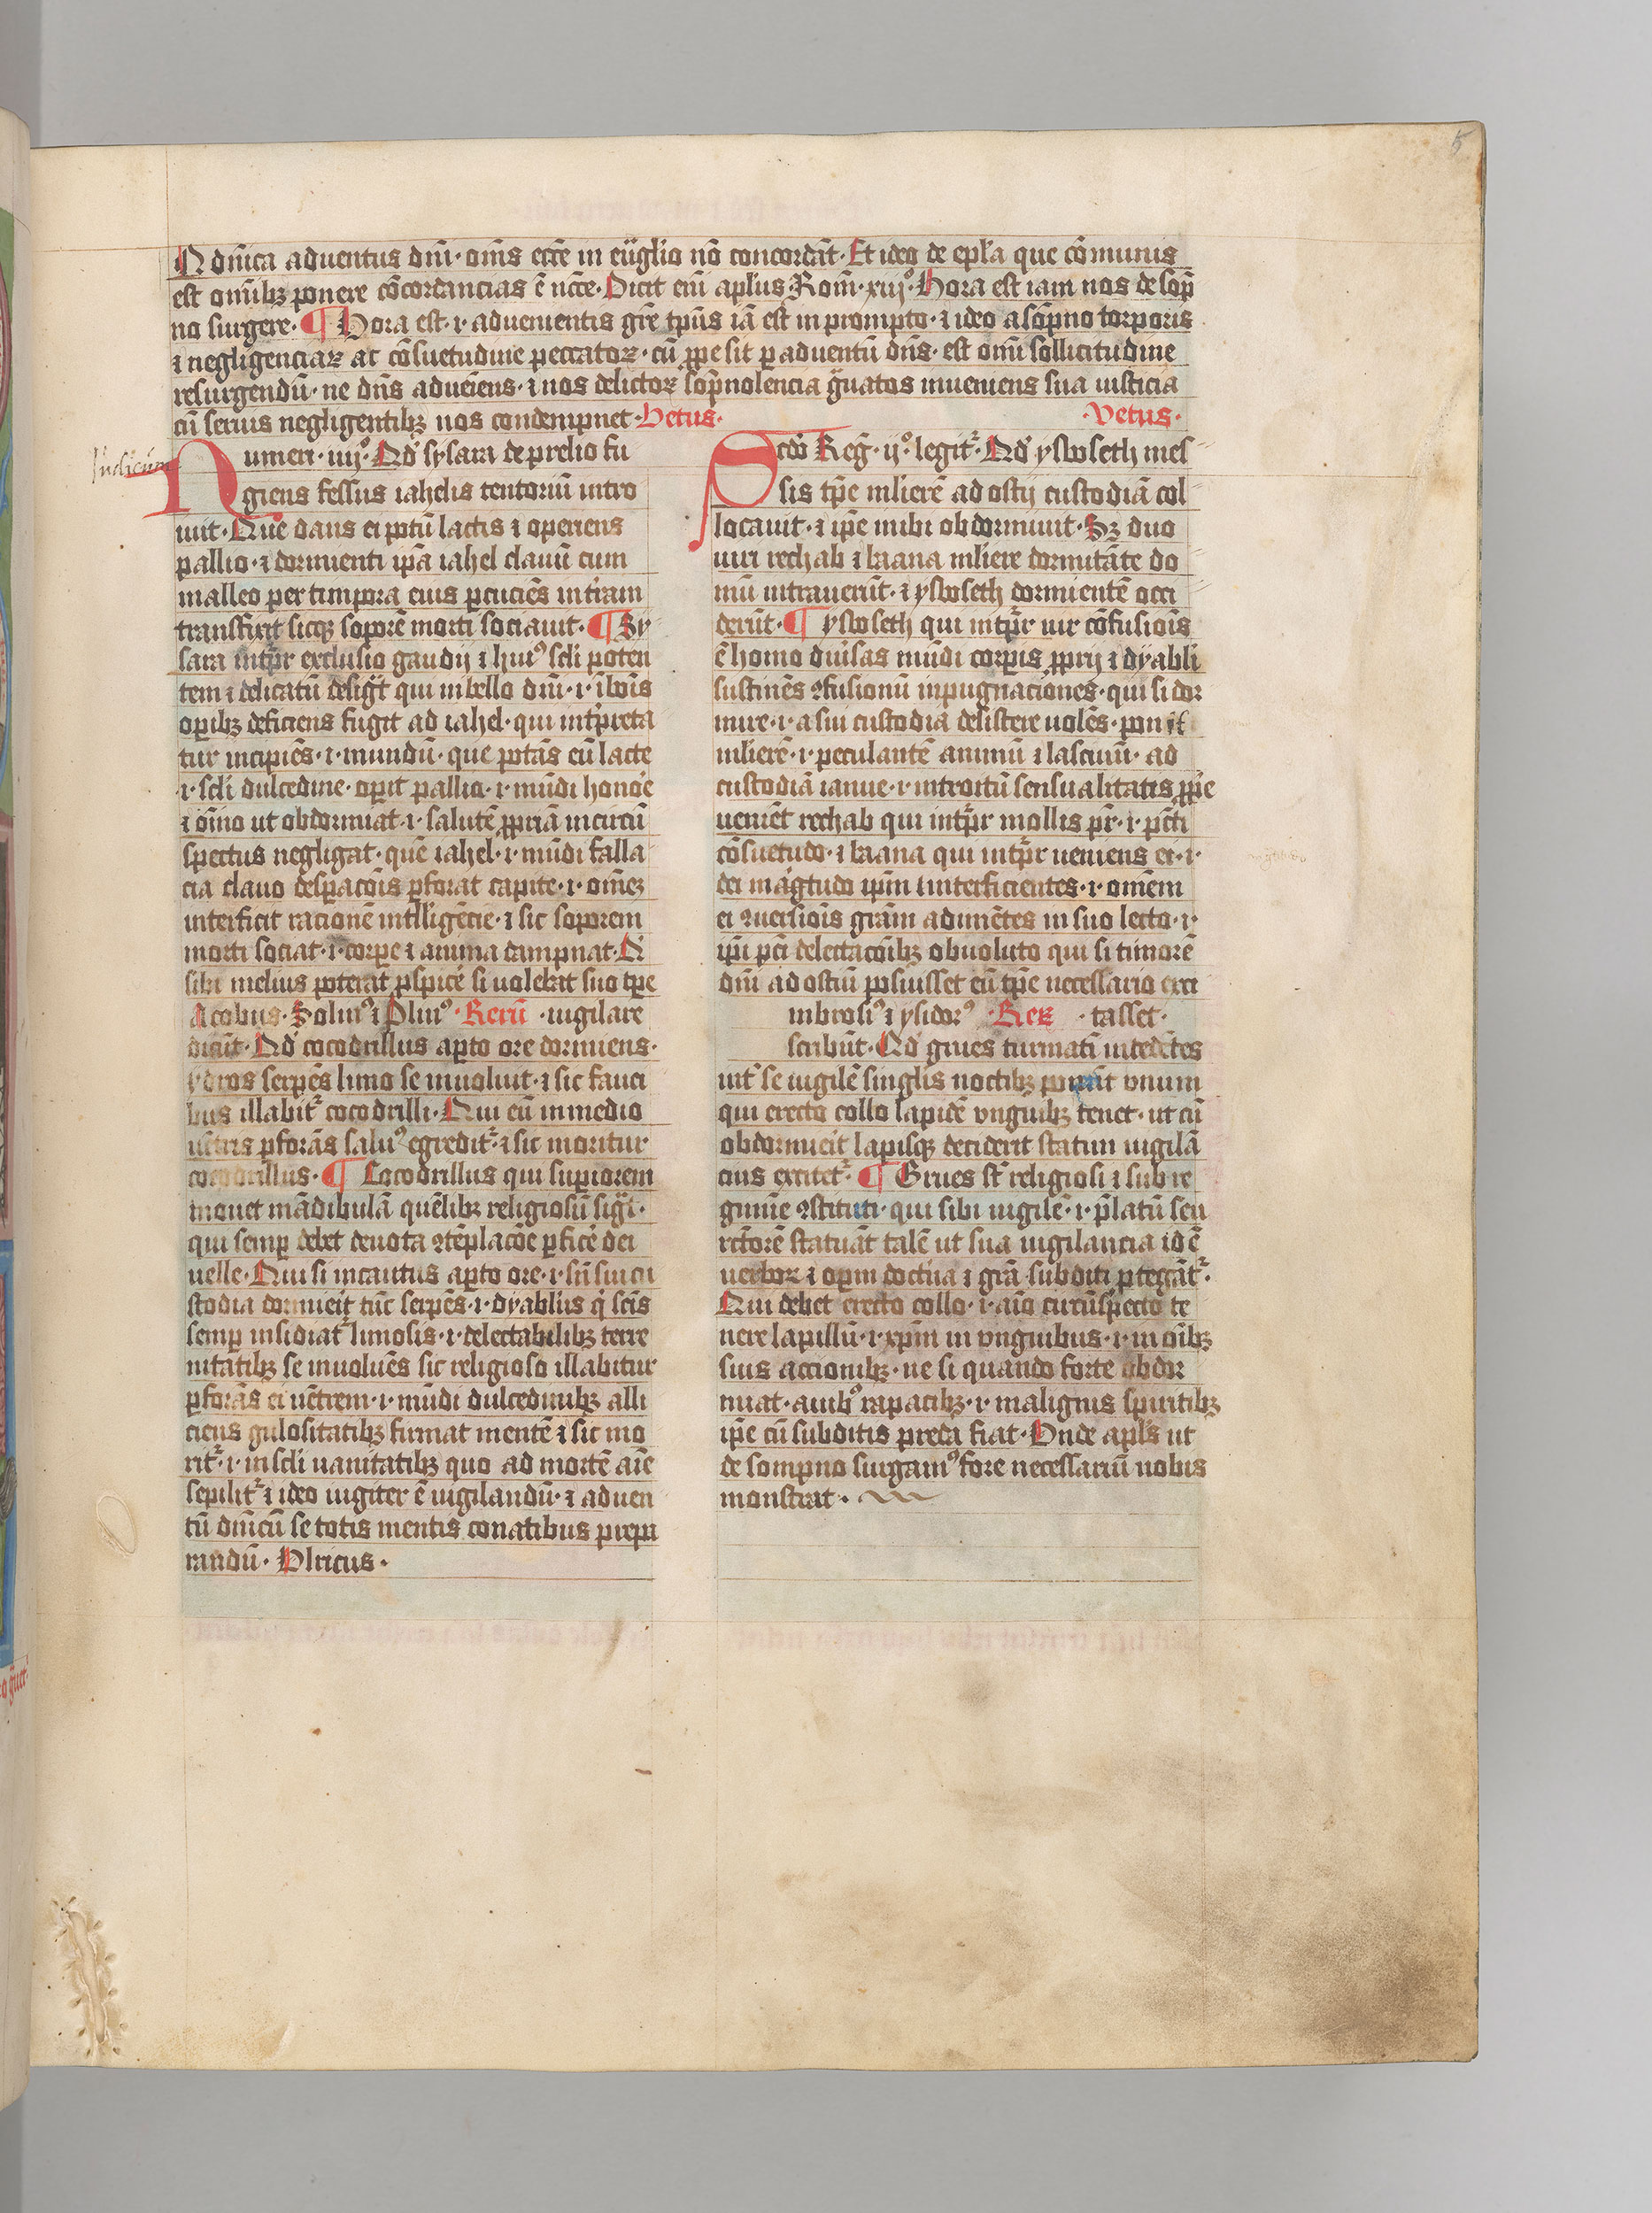 5
N dn̄ica aduentus dn̄i · om̄s ecc̄e in eūgl̄io nō concordāt · Et ideo de ep̄la que cōmunis
est om̄ibꝫ ponere cōcordancias ē nc̄ce · Dicit em̄ apl̄us Rom̄ · xiijº · Hora est iam nos de sop̄
no surgere · ¶ Hora est · i · aduenientis gr̄e tp̄us iā est in prompto · ⁊ ideo a sop̄no torporis
⁊ negligenciaꝝ ac cōsuetudine peccatoꝝ · cū ꝓpe sit ꝑ aduentū dn̄s · est om̄i sollicitudine
resurgendū · ne dn̄s adueiens · ⁊ nos delictoꝝ sop̄nolencia g̃uatos inueniens sua iusticia
cū seruis negligentibꝫ nos condempnet · Vetus ·
Judicum
Numeri · iiijº · Qd̛ sysara de prelio fu
giens fessus iahelis tentoriū intro
iuit · Que dans ei potū lactis ⁊ operiens
pallio · ⁊ dormienti ip̄a iahel clauū cum
malleo per timpora eius ꝑcuciēs in t̛ram
transfixit sicqꝫ soporē morti sociauit · ¶ Sy
sara int̛pr̄ exclusio gaudij ⁊ huiꝰ scl̄i poten
tem ⁊ delicatū desig̃t qui in bello dn̄i · i · ī bōis
oꝑibꝫ deficiens fugit ad iahel · qui int̛preta
tur incipiēs · i · mundū · que potās eū lacte
· i · scl̄i dulcedine · oꝑit pallio · i · mūdi honoē
⁊ oīno ut obdormiat · i · salutē ꝓpriā incircū
spectus negligat · quē iahel · i · mūdi falla
cia clauo desꝑacōis ꝑforat capite · i · om̄eꝫ
interficit racionē intlligēcie · ⁊ sic soporem
morti sociat · i · corꝑe ⁊ anima dampnat · Q̛
sibi melius poterat ꝓspice̛ si uolebat suo tp̄e
Acobus · Soluiꝰ ⁊ Pliniꝰ · Rerū · uigilare
dicūt · Qd̛ cocodrillus aꝑto ore dormiens ·
ydros serpēs limo se inuoluit · ⁊ sic fauci
bus illabit̛ cocodrilli · Qui eū in medio
uētris ꝑforās saluꝰ egredit̛ · ⁊ sic moritur
cocodrillus · ¶ Cocodrillus qui suꝑiorem
mouet mādibulā quēlibꝫ religiosū sig̃t ·
qui semꝑ debet deuota ꝯtēplacōe ꝑfice̛ dei
uelle · Qui si incautus aꝑto ore · i · sn̄ sui cu
stodia dormieit tūc serpēs · i · dyablus q̛ scīs
semꝑ insidiat̛ limosis · i · delectabilibꝫ terre
nitatibꝫ se inuoluēs sic religioso illabitur
ꝑforās ei uētrem · i · mūdi dulcedinibꝫ alli
ciens gulositatibꝫ firmat mentē ⁊ sic mo
rit̛ · i · in scl̄i uanitatibꝫ quo ad mortē aīe
sepilit̛ ⁊ ideo iugiter ē uigilandū · ⁊ aduen
tū dn̄icū se totis mentis conatibus prepa
randū · Vlricus ·
· Vetus ·
Scdō Reg̃ · ijº · legit̛ · Qd̛ ysboseth mes
sis tp̄e mlierē ad ostij custodiā col
locauit · ⁊ ip̄e inibi obdormiuit · Sꝫ duo
uiri rechab ⁊ baana mliere dormitāte do
mū intrauerūt · ⁊ ysboseth dormientē occi
derūt · ¶ ysboseth qui int̛pr̄ uir cōfusiōis
ē homo diūsas mūdi corꝑis ꝓprij ⁊ dyabli
sustinēs ꝯfusionū inpugnaciones · qui si dor
mire · i · a sui custodia desistere uolēs · ponit
mlierē · i · peculantē animū ⁊ lasciuū · ad
custodiā ianue · i · introitū sensualitatis ꝓprie
ueniēt rechab qui int̛pr̄ mollis pr̄ · i · pc̄ti
cōsuetudo · ⁊ baana qui int̛pr̄ ueniens ei · i ·
dei māgtudo ip̄m interficientes · i · omēm
ei ꝯuersiōis grām adimētes in suo lecto · i ·
ip̄i pc̄i delectacōibꝫ obuoluto qui si timorē
dn̄i ad ostiū posuisset eū tp̄e necessario exci
mbrosiꝰ ⁊ ysidorꝰ · Reꝝ · tasset ·
scribūt · Qd̛ grues turmatī intēdētes
int̛ se uigilē singl̄is noctibꝫ ponūt vnum
qui erecto collo lapidē vnguibꝫ tenet · ut cū
obdormieit lapisqꝫ deciderit statim uigilā
cius excitet̛ · ¶ Grues st̄ religiosi ⁊ sub re
gimīe ꝯstituti · qui sibi uigilē · i · p̄latū seu
rc̄torē statuāt talē ut sua uigilancia id ē
uerboꝝ ⁊ oꝑm doctrīa ⁊ grā subditi ꝓtegāt̛ ·
Qui debet erecto collo · i · aīo circūspecto te
nere lapillū · i · xp̄m in vnguibus · i · in oībꝫ
suis accionibꝫ · ne si quando forte obdor
miat · auibꝰ rapacibꝫ · i · malignis spiritibꝫ
ip̄e cū subditis preda fiat · Vnde apl̄s ut
de sompno surgamꝰ fore necessariū nobis
monstrat ·